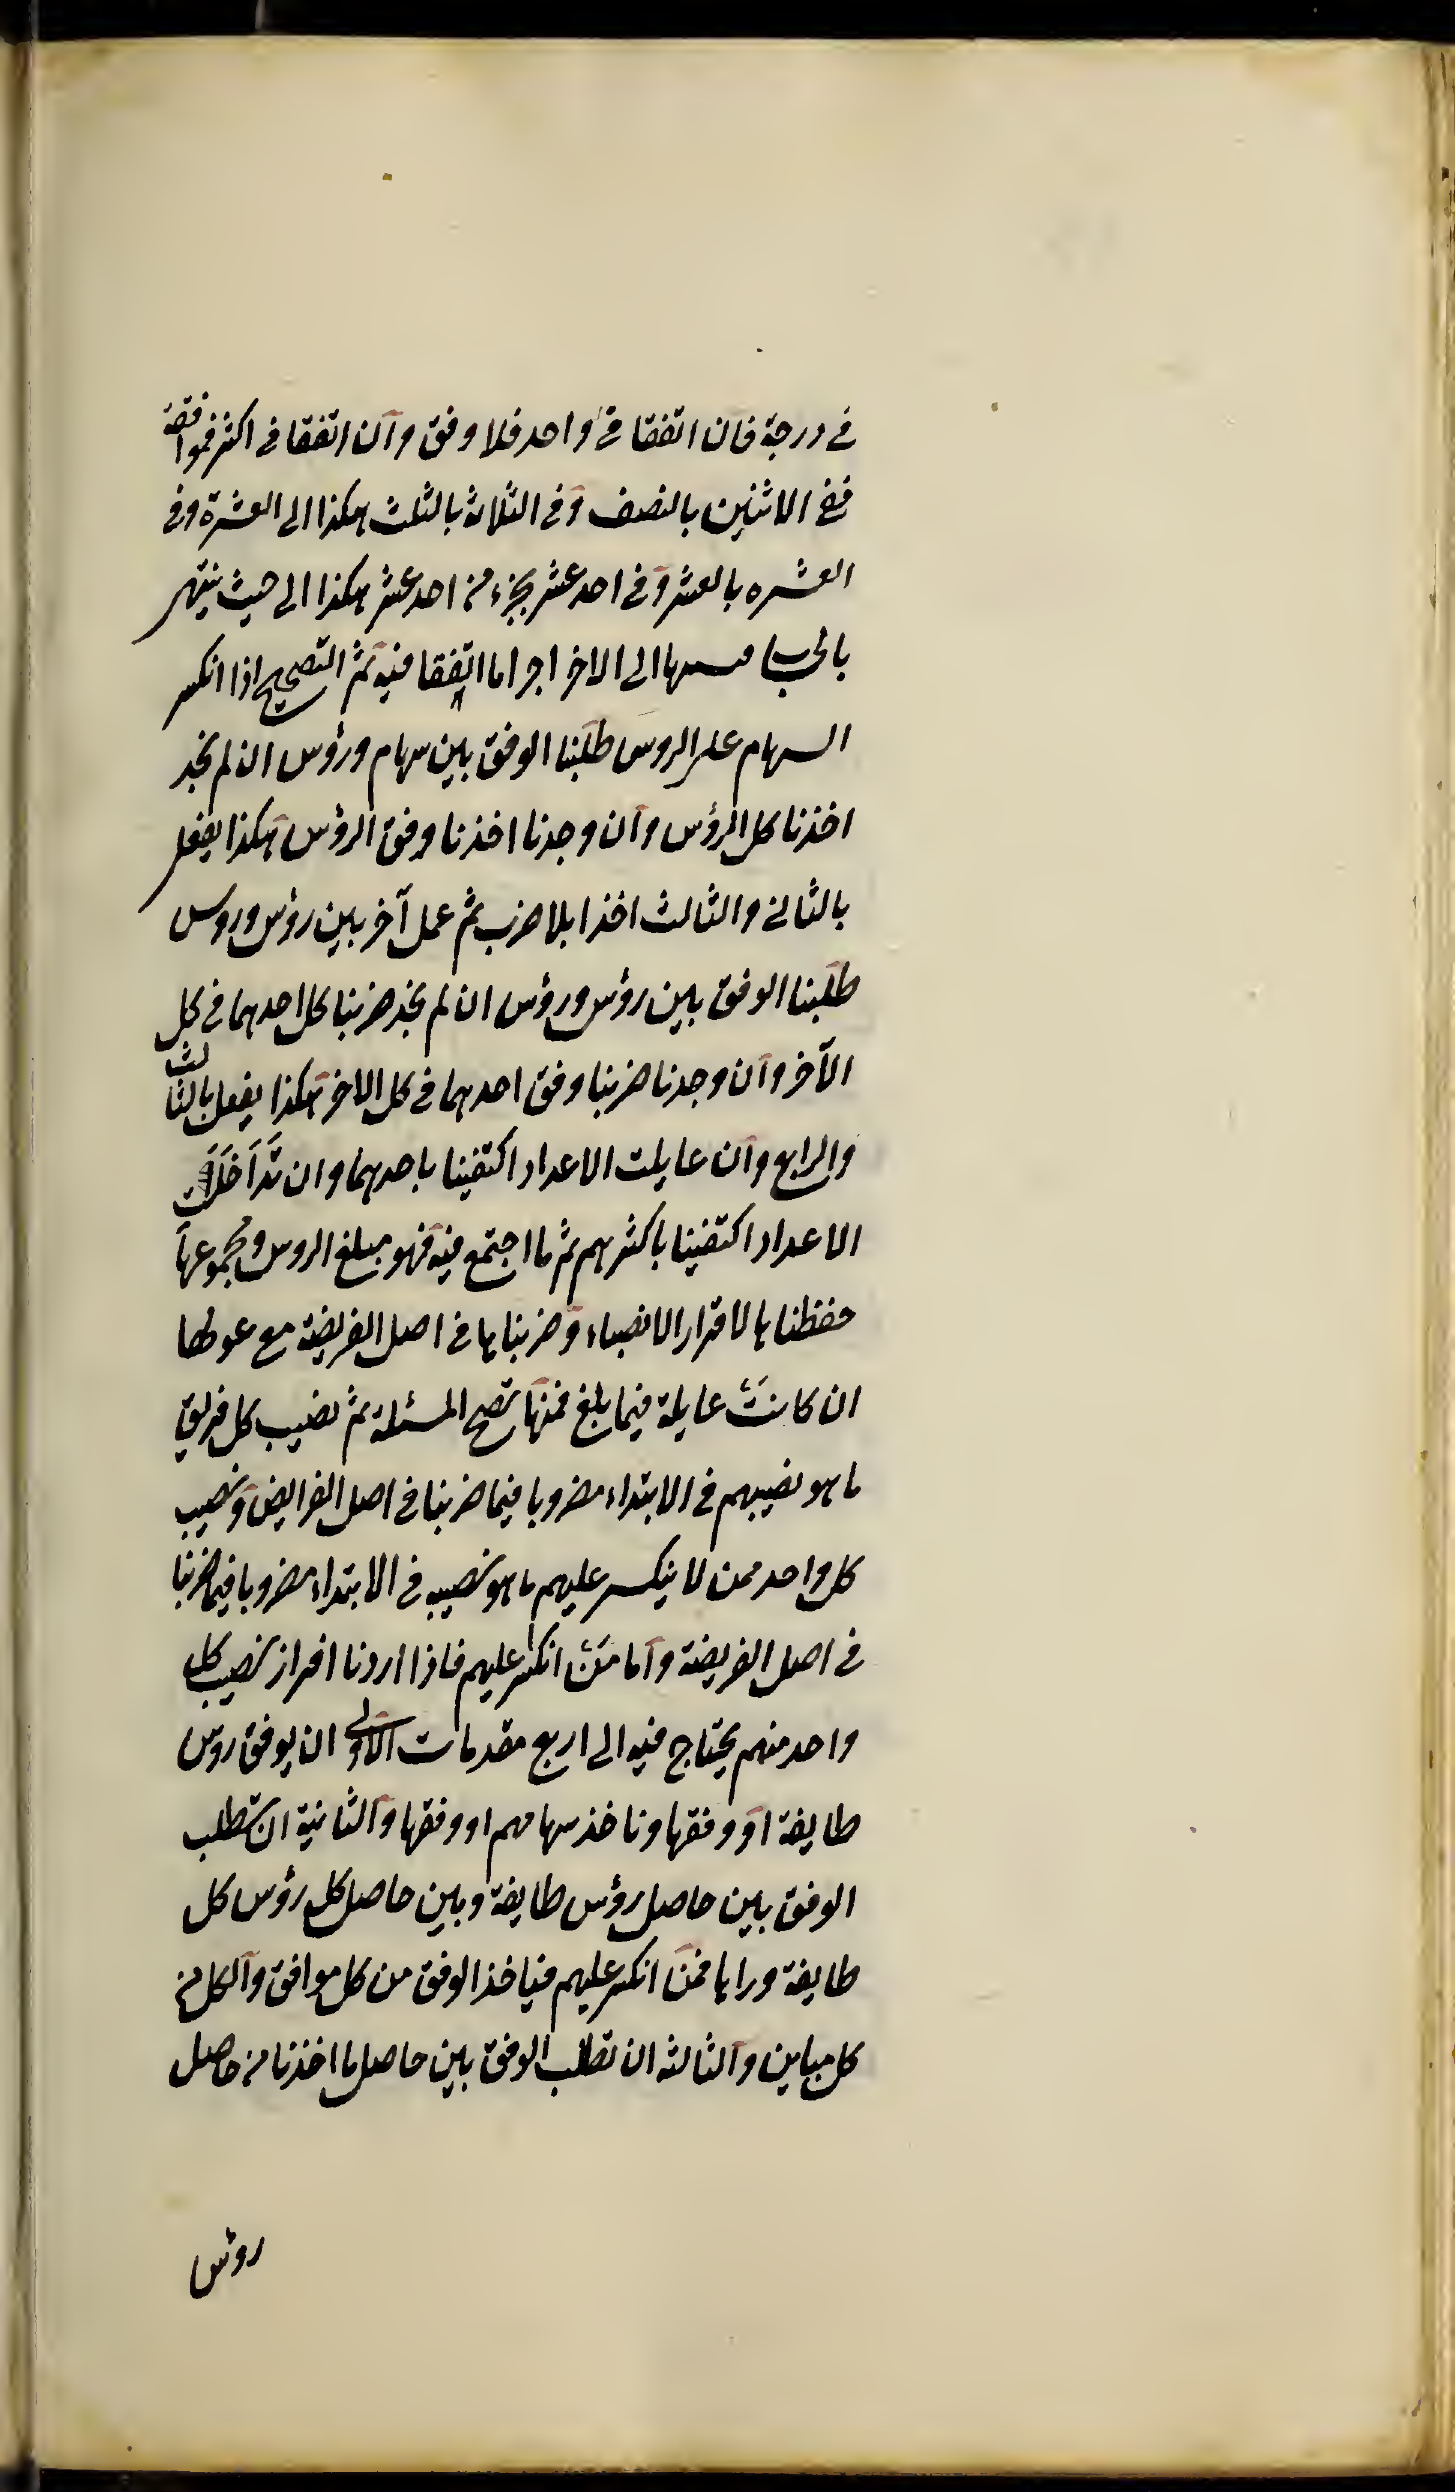 في درجة فان اتفقا في واحد فلا وفق وان اتفقا في اكثر فموافقة
ففي الاثنين بالنصف وفي الثلاثة بالثلث هكذا الى العشرة وفي
العشره بالعشر وفي احد عشر بجزء من احد عشر هكذا الى حيث ينتهى
الى الاخر اتفقا فيه ثم التصحيح اذا انكسر
السهام على الروس طلبنا الوفق بين سهام ورؤس ان لم نجد
اخذنا كل الرؤس وان وجدنا اخذنا وفق الرؤس هكذا يفعل
بالثاني والثالث اخذا بلا ضرب ثم عمل آخر بين رؤس وروس
طلبنا الوفق بين رؤس ورؤس ان لم نجد ضربنا كل احدهما في كل
الآخر وان وجدنا ضربنا وفق احدهما في كل الاخر هكذا يفعل بالثالث
والرابع وان عايلت الاعداد اكتفينا باحدهما وان تداخلت
الاعداد اكتفينا باكثرهم ثم ما اجتمع فيه فهو مبلغ الروس ومجموعها
حفظناها لاقرار الانصباء وضربناها في اصل الفريضة مع عولها
ان كانت عايلة فيما بلغ فمنها تصح المسئلة ثم نصيب كل فريق
ما هو نصيبهم في الابتداء مضروبا فيما ضربنا في اصل الفرايض ونصيب
كل واحد ممن لا ينكسر عليهم ما هو نصيبه في الابتداء مضروبا فيما ضربنا
في اصل الفريضة واما من انكسر عليهم فاذا اردنا افراز نصيب كل
واحد منهم يحتاج فيه الى اربع مقدمات الاولى ان يوفق روس
طايفة او وفقها وناخذ سهامهم او وفقها والثانية ان تطلب
الوفق بين حاصل رؤس طايفة وبين حاصل كل رؤس كل
طايفة وراها فمن انكسر عليهم فياخذ الوفق من كل موافق والكل من
كل مباين والثالثه ان تطلب الوفق بين حاصل ما اخذنا من حاصل
روس